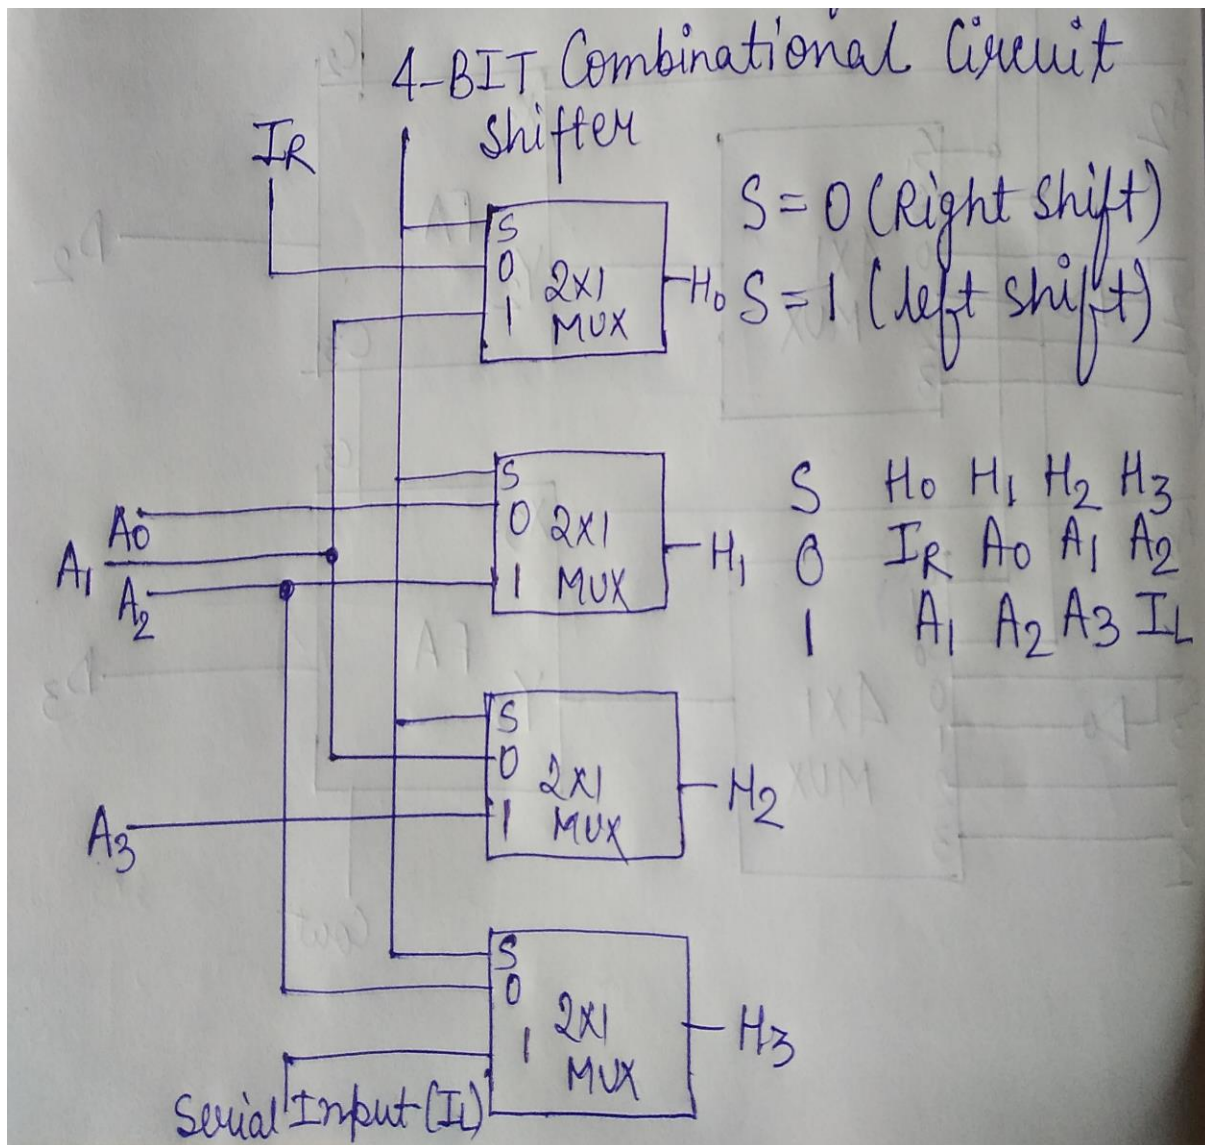 4-BIT Combinational Circuit
shifter
IR
S
0
1
2X1
MUX
H0
S = 0 (Right Shift)
S = 1 (left shift)
A0
A1
A2
S
0
1
2X1
MUX
H1
S H0 H1 H2 H3
0 IR A0 A1 A2
1 A1 A2 A3 IL
S
0
1
2X1
MUX
H2
A3
S
0
1
2X1
MUX
H3
Serial Input (IL)